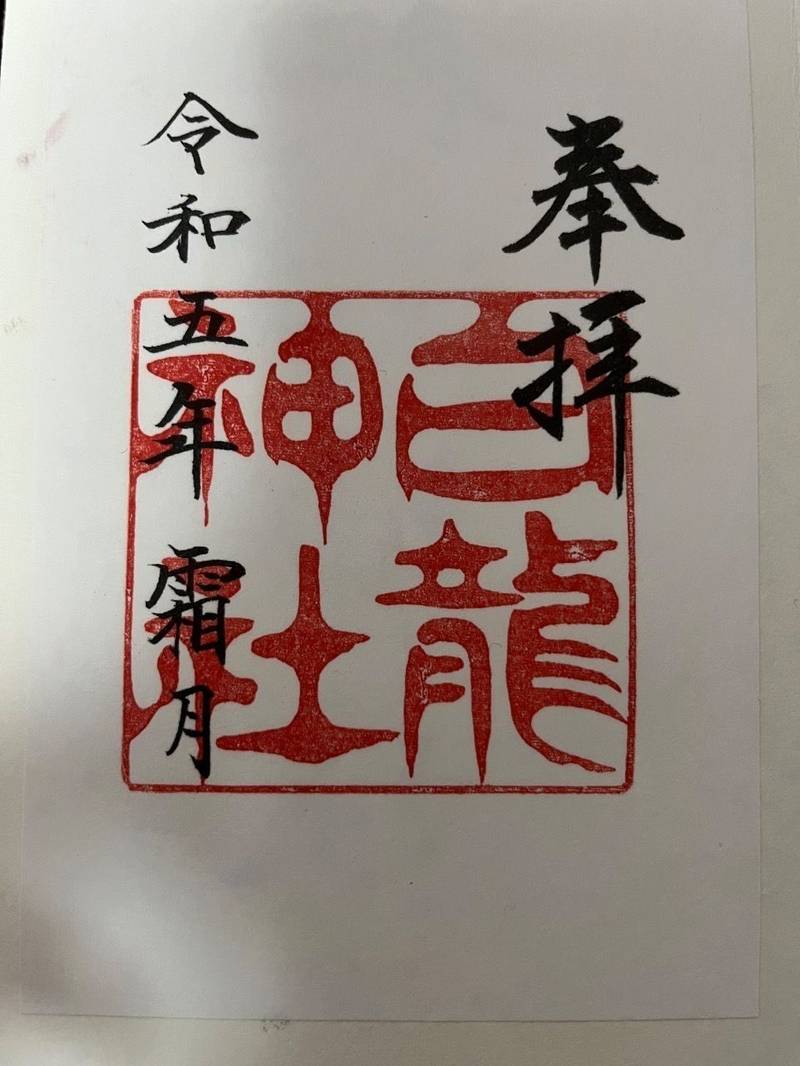 奉拝
白龍
神社
令和五年霜月